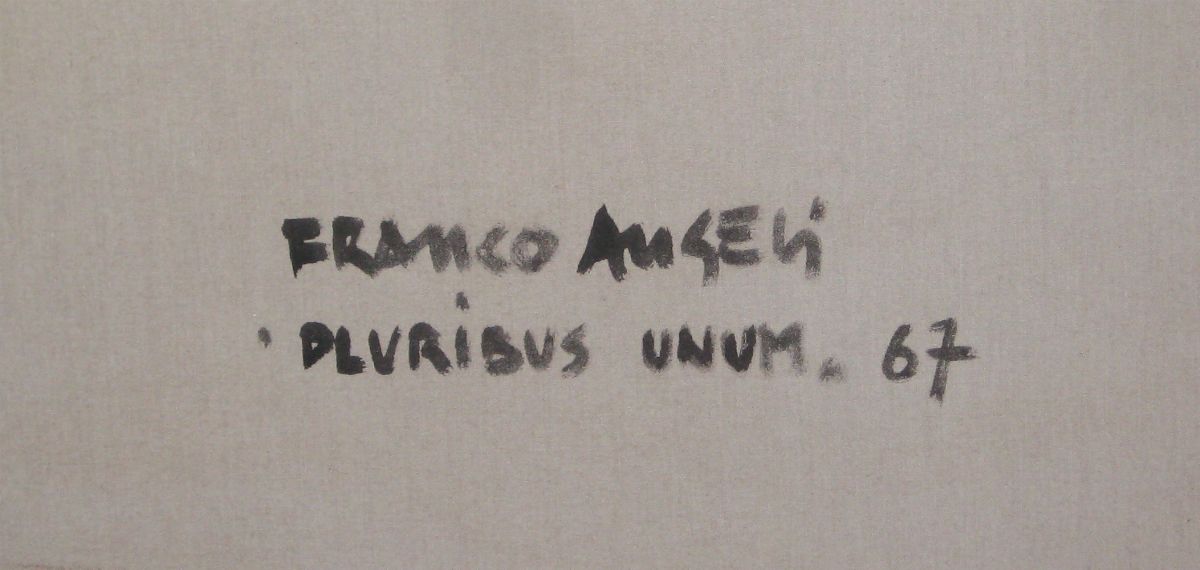 FRANCO ANGELi
· PLURiBUS UNUM. 67